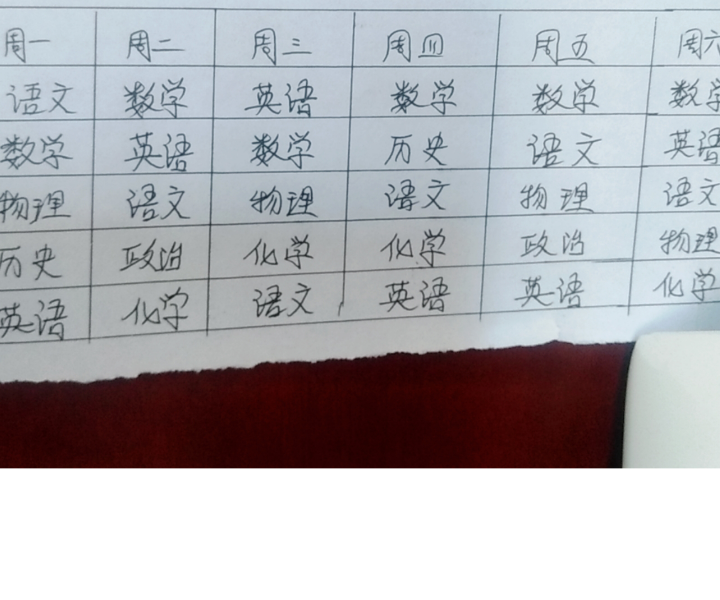 周一 周二 周三 周四 周五 周六
语文 数学 英语 数学 数学 数学
数学 英语 数学 历史 语文 英语
物理 语文 物理 语文 物理 语文
历史 政治 化学 化学 政治 物理
英语 化学 语文 英语 英语 化学